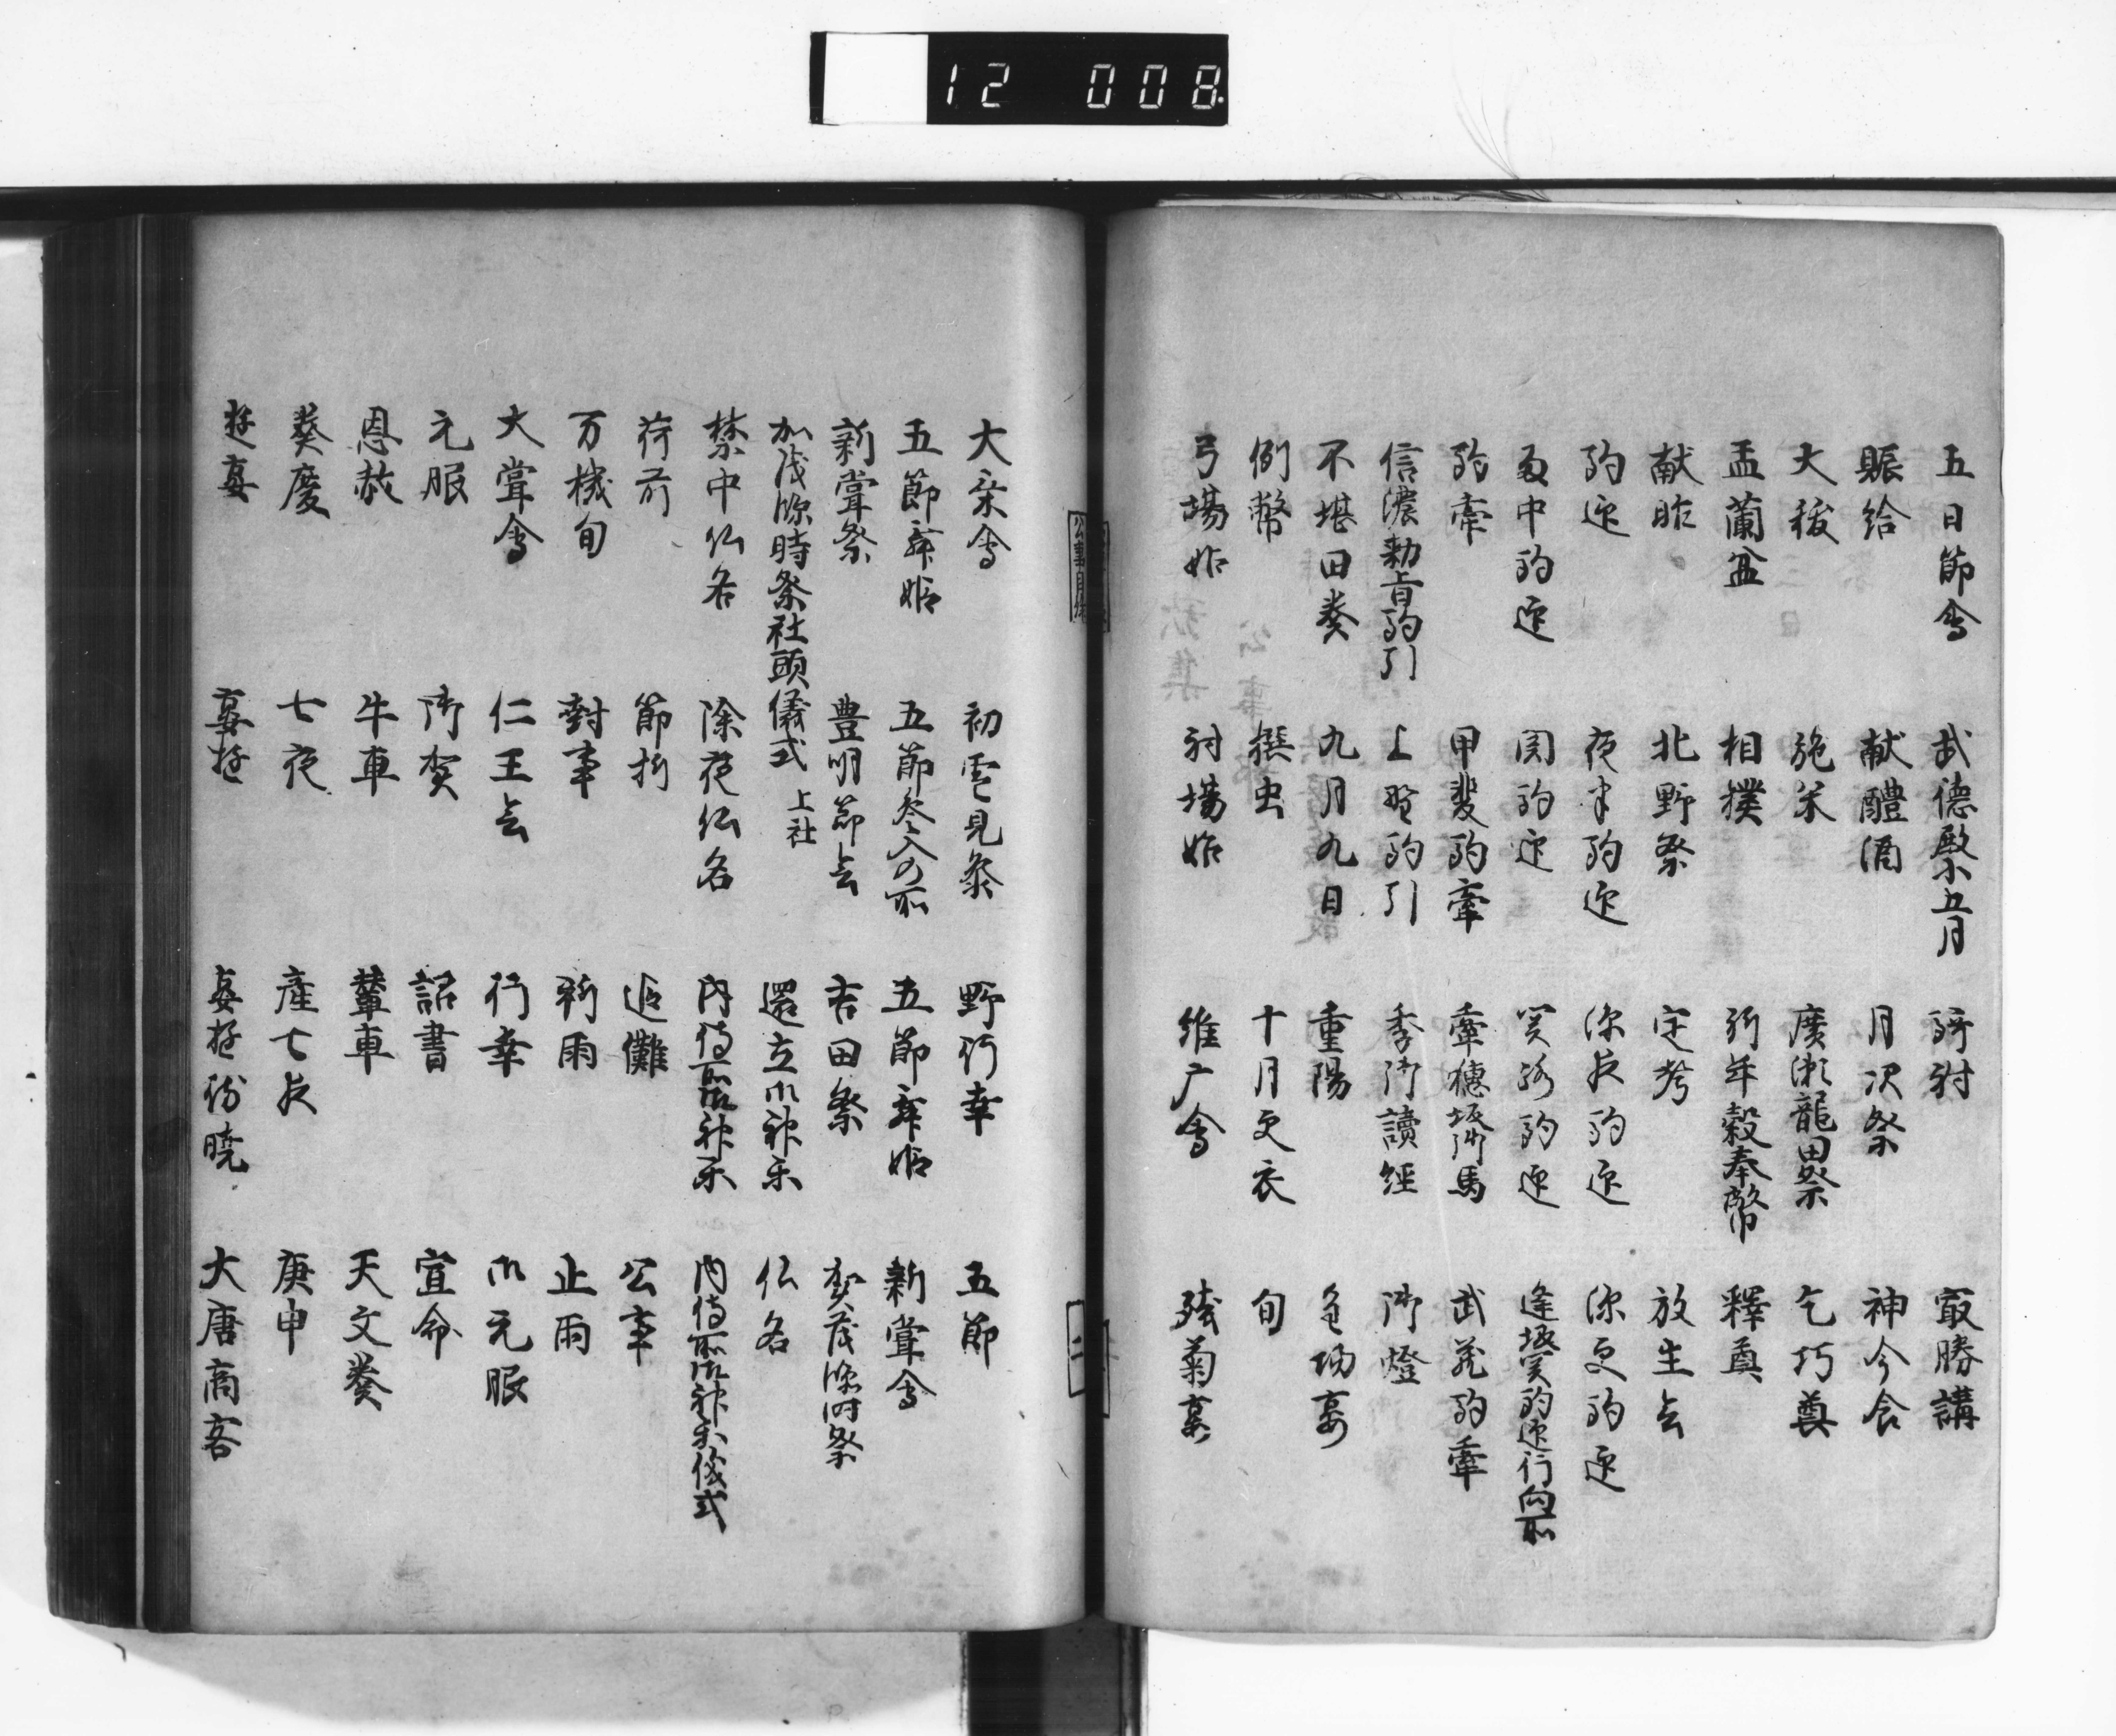 12 008
五日節會 武德殿小五月 騎射 最勝講
賑給 献醴酒 月次祭 神今食
大祓 施米 廣瀬龍田祭 乞巧奠
盂蘭盆 相撲 祈年穀奉幣 釋奠
献昨 北野祭 定考 放生会
駒迎 夜半駒迎 深夜駒迎 深更駒迎
雨中駒迎 関駒迎 関路駒迎 逢坂関駒迎行向所
駒牽 甲斐駒牽 牽穂坂御馬 武蔵駒牽
信濃勅旨駒引 上野駒引 季御讀經 御燈
不堪田奏 九月九日 重陽
例幣 撰虫 十月更衣 旬
弓場始 射場始 維广會 残菊宴
大嘗會 初雪見参 野行幸 五節
五節舞姫 五節参入の所 五節舞姫 新嘗會
新嘗祭 豊明節会 吉田祭 賀茂臨時祭
加茂臨時祭社頭儀式 上社 還立御神楽 仏名
禁中仏名 除夜仏名 内侍所御神楽 内侍所御神楽儀式
荷前 節折 追儺 公事
万機旬 封事 祈雨 止雨
大嘗會 仁王会 行幸 御元服
元服 御賀 詔書 宣命
恩赦 牛車 輦車 天文奏
奏慶 七夜 産七夜 庚申
遊宴 宴遊 宴遊待暁 大唐商客
公事目録
二